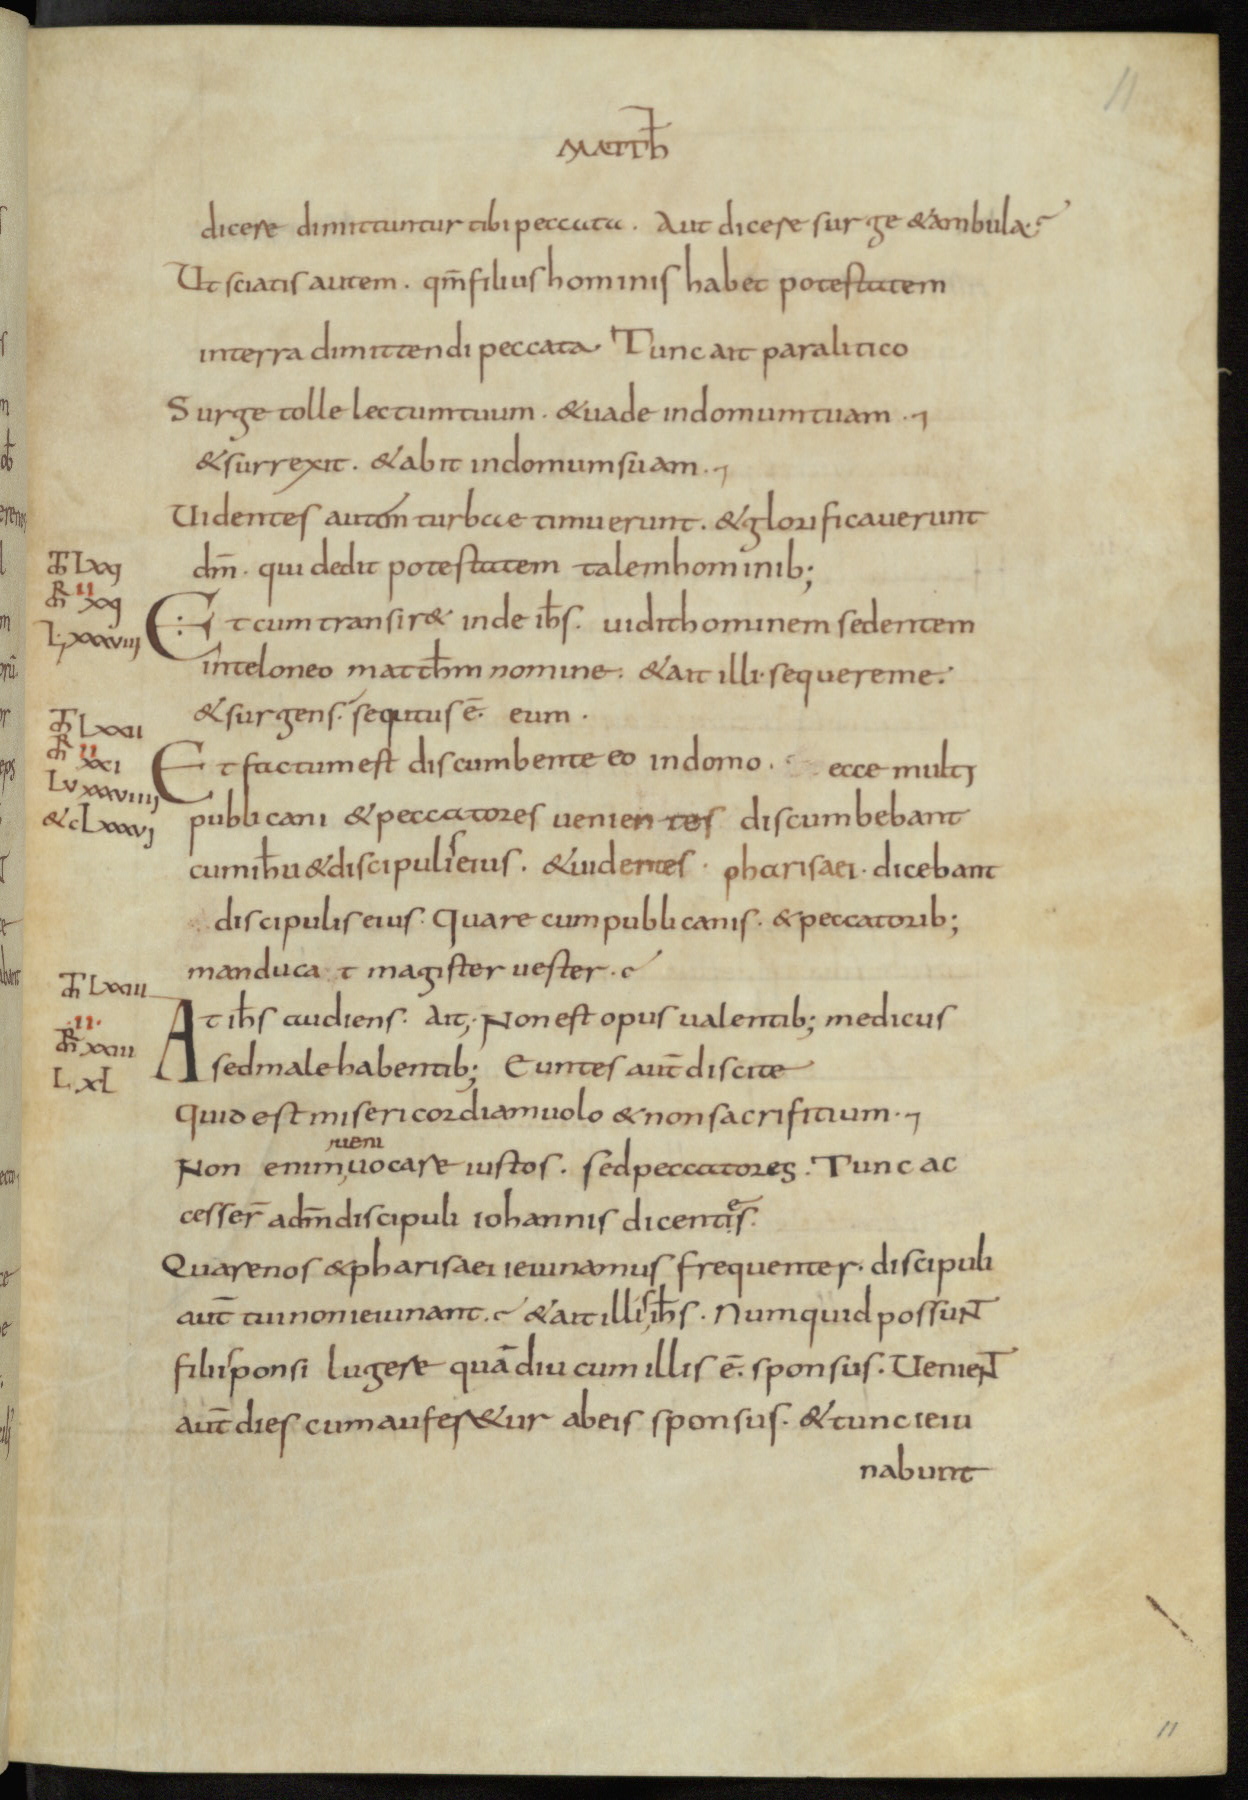 11
MATTħ
dicere dimittuntur tibi peccata. Aut dicere surge & ambula.
Ut sciatis autem. qm̄ filius hominis habet potestatem
interra dimittendi peccata. Tunc ait paralitico
Surge tolle lectum tuum. & uade indomum tuam.
& surrexit. & abiit indomum suam.
Uidentes autem turbae timuerunt. & glorificauerunt
dm̄. qui dedit potestatem talem hominib;
LXXI
II
XXI
L. XXXVIII
Et cum transir& inde ih̄s. uidit hominem sedentem
inteloneo matth̄m nomine. & ait illi. sequere me.
& surgens. sequutus ē. eum.
LXXII
II
XXI
LU XXXVIIII
& CLXXXVI
Et factum est discumbente eo indomo. ecce multi
publicani & peccatores uenientes discumbebant
cum ih̄u & discipulis eius. & uidentes. pharisaei. dicebant
discipulis eius. Quare cum publicanis. & peccatorib;
manducat magister uester.
LXXIII
II
XXIII
L XL
At ih̄s audiens. Ait,. Non est opus ualentib; medicus
sed male habentib; Euntes aut̄ discite
quid est misericordiam uolo & non sacrifitium.
ueni
Non enim, uocare iustos. sed peccatores. Tunc ac
cesser̄ adm̄ discipuli iohannis dicentes.
Quare nos & pharisaei ieiunamus frequenter. discipuli
aut̄ tui non ieiunant. & ait illis ih̄s. Numquid possunt
filii sponsi lugere quādiu cum illis ē. sponsus. Uenient
aut̄ dies cum aufer&ur abeis sponsus. & tunc ieiu
nabunt
11